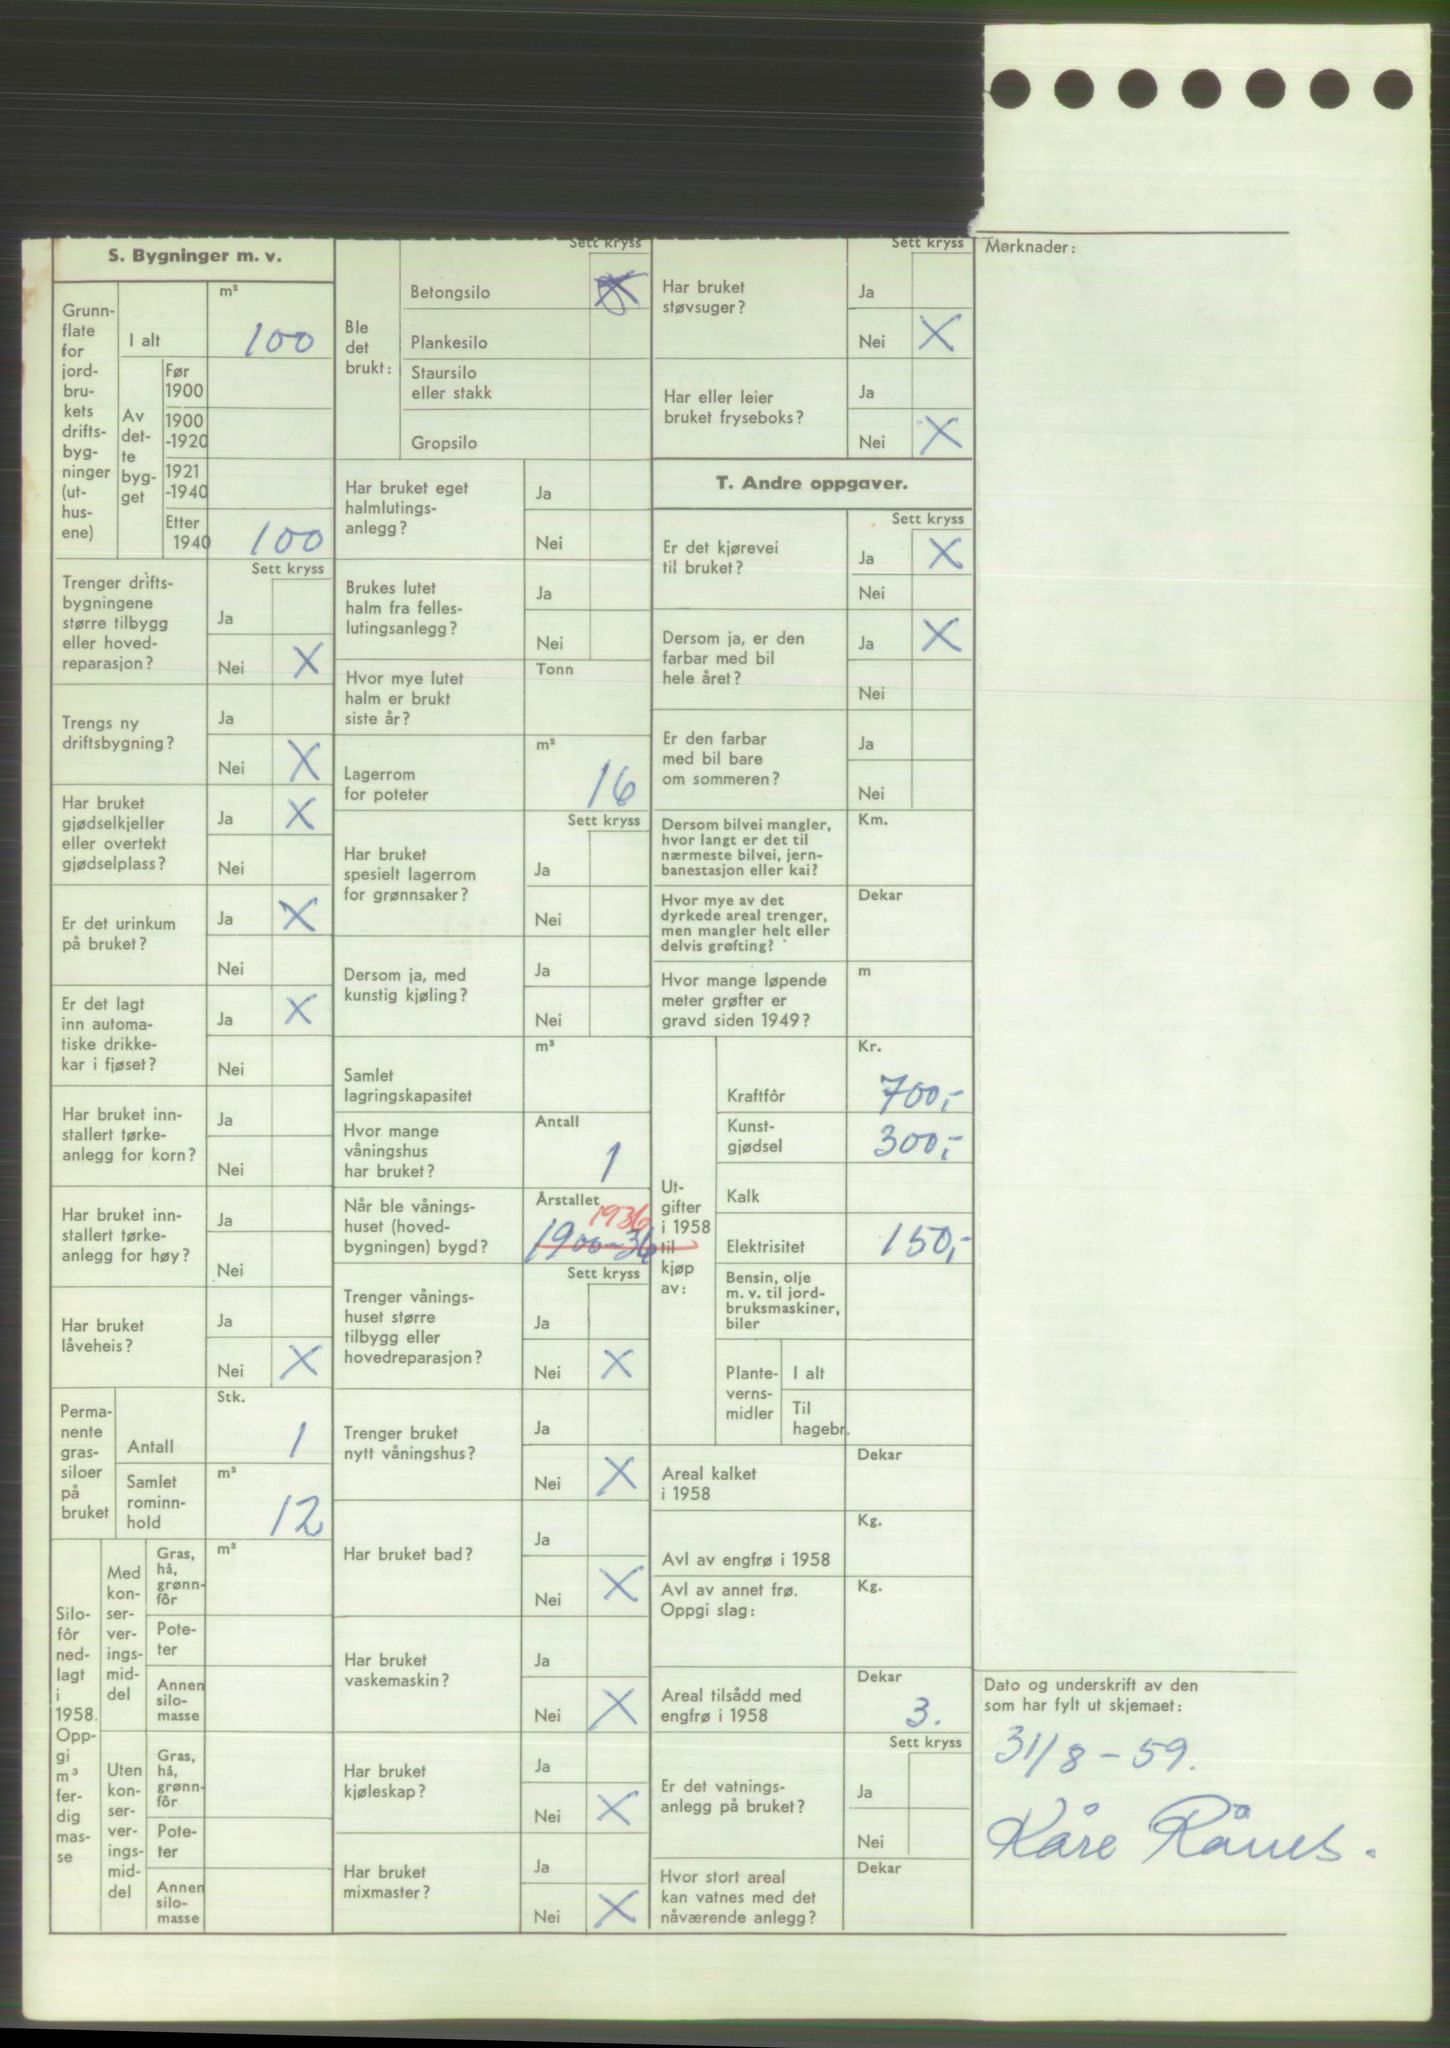 S. Bygninger m. v.
Grunn-
flate
for
jord-
bru-
kets
drifts-
byg-
ninger
(ut-
hus-
ene)
I alt
m²
100
Av
det-
te
byg-
get
Før
1900
1900
-1920
1921
-1940
Etter
1940
100
Sett kryss
Trenger drifts-
bygningene
større tilbygg
eller hoved-
reparasjon?
Ja
Nei X
Trengs ny
driftsbygning?
Ja
Nei X
Har bruket
gjødselkjeller
eller overtekt
gjødselplass?
Ja X
Nei
Er det urinkum
på bruket?
Ja X
Nei
Er det lagt
inn automa-
tiske drikke-
kar i fjøset?
Ja X
Nei
Har bruket inn-
stallert tørke-
anlegg for korn?
Ja
Nei
Har bruket inn-
stallert tørke-
anlegg for høy?
Ja
Nei
Har bruket
låveheis?
Ja
Nei X
Perma-
nente
gras-
siloer
på
bruket
Antall
Stk.
1
Samlet
rominn-
hold
m³
12
Silo-
fôr
ned-
lagt
i
1958.
Opp-
gi
m³
fer-
dig
mas-
se
Med
kon-
ser-
ver-
ings-
mid-
del
Gras,
hå,
grønn-
fôr
m³
Pote-
ter
Annen
silo-
masse
Uten
kon-
ser-
ver-
ings-
mid-
del
Gras,
hå,
grønn-
fôr
Pote-
ter
Annen
silo-
masse
Ble
det
brukt:
Sett kryss
Betongsilo X
Plankesilo
Staursilo
eller stakk
Gropsilo
Har bruket eget
halmlutings-
anlegg?
Ja
Nei
Brukes lutet
halm fra felles-
lutingsanlegg?
Ja
Nei
Hvor mye lutet
halm er brukt
siste år?
Tonn
Lagerrom
for poteter
m²
16
Sett kryss
Har bruket
spesielt lagerrom
for grønnsaker?
Ja
Nei
Dersom ja, med
kunstig kjøling?
Ja
Nei
Samlet
lagringskapasitet
m³
Hvor mange
våningshus
har bruket?
Antall
1
Når ble vånings-
huset (hoved-
bygningen) bygd?
Årstallet
1936
1900-36
Sett kryss
Trenger vånings-
huset større
tilbygg eller
hovedreparasjon?
Ja
Nei X
Trenger bruket
nytt våningshus?
Ja
Nei X
Har bruket bad?
Ja
Nei X
Har bruket
vaskemaskin?
Ja
Nei X
Har bruket
kjøleskap?
Ja
Nei X
Har bruket
mixmaster?
Ja
Nei X
Sett kryss
Har bruket
støvsuger?
Ja
Nei X
Har eller leier
bruket fryseboks?
Ja
Nei X
T. Andre oppgaver.
Sett kryss
Er det kjørevei
til bruket?
Ja X
Nei
Dersom ja, er den
farbar med bil
hele året?
Ja X
Nei
Er den farbar
med bil bare
om sommeren?
Ja
Nei
Dersom bilvei mangler,
hvor langt er det til
nærmeste bilvei, jern-
banestasjon eller kai?
Km.
Hvor mye av det
dyrkede areal trenger,
men mangler helt eller
delvis grøfting?
Dekar
Hvor mange løpende
meter grøfter er
gravd siden 1949?
m
Ut-
gifter
i 1958
til
kjøp
av:
Kr.
Kraftfôr 700,-
Kunst-
gjødsel 300,-
Kalk
Elektrisitet 150,-
Bensin, olje
m. v. til jord-
bruksmaskiner,
biler
Plante-
verns-
midler
I alt
Til
hagebr.
Areal kalket
i 1958
Dekar
Avl av engfrø i 1958
Kg.
Avl av annet frø.
Oppgi slag:
Kg.
Areal tilsådd med
engfrø i 1958
Dekar
3.
Sett kryss
Er det vatnings-
anlegg på bruket?
Ja
Nei
Hvor stort areal
kan vatnes med det
nåværende anlegg?
Dekar
Merknader:
Dato og underskrift av den
som har fylt ut skjemaet:
31/8-59.
Kåre Rånes.